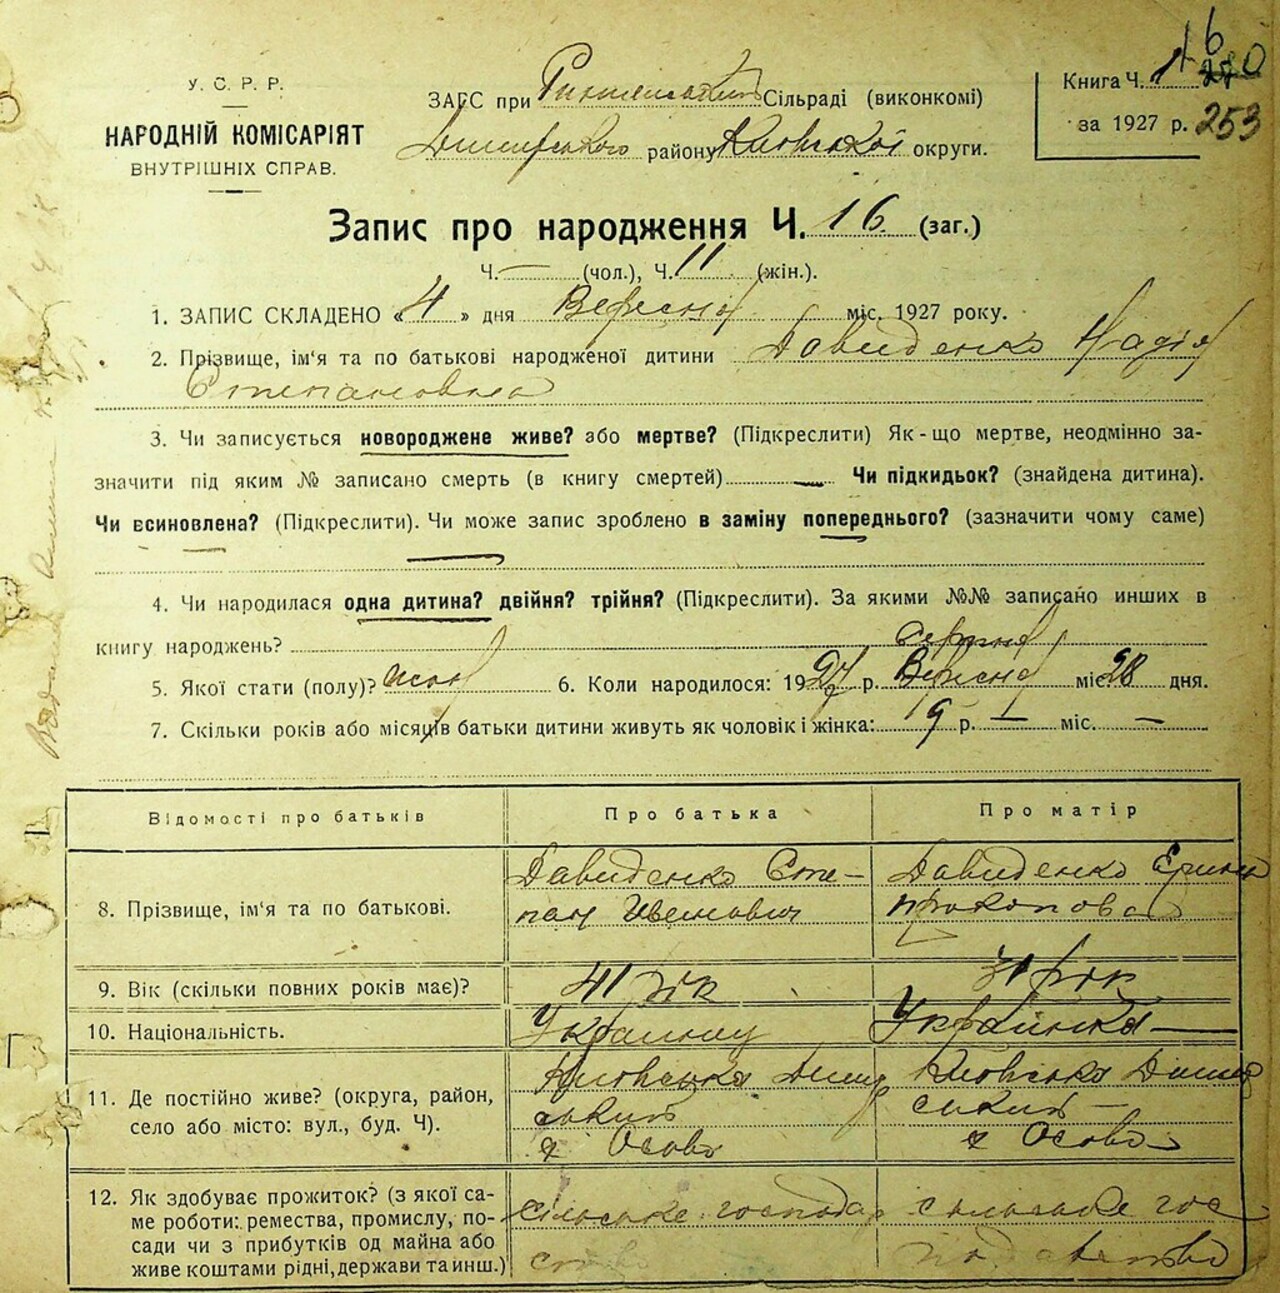 16
У. С. Р. Р.
НАРОДНІЙ КОМІСАРІЯТ
ВНУТРІШНІХ СПРАВ.
ЗАГС при Сільраді (виконкомі)
Димерського району Київської округи.
Книга Ч. 1
за 1927 р. 253
Запис про народження Ч. 16 (заг.)
Ч. — (чол.), Ч. 11 (жін.).
1. ЗАПИС СКЛАДЕНО «4» дня Вересня міс. 1927 року.
2. Прізвище, ім'я та по батькові народженої дитини Давиденко Надія
Степановна
3. Чи записується новороджене живе? або мертве? (Підкреслити) Як-що мертве, неодмінно за-
значити під яким № записано смерть (в книгу смертей) — Чи підкидьок? (знайдена дитина).
Чи всиновлена? (Підкреслити). Чи може запис зроблено в заміну попереднього? (зазначити чому саме)
4. Чи народилася одна дитина? двійня? трійня? (Підкреслити). За якими №№ записано инших в
книгу народжень?
серпня
5. Якої стати (полу)? жін 6. Коли народилося: 1927 р. Вересня міс. 28 дня.
7. Скільки років або місяців батьки дитини живуть як чоловік і жінка: 19 р. — міс. —
Відомості про батьків Про батька Про матір
8. Прізвище, ім'я та по батькові. Давиденко Сте- Давиденко
пан Ивенович Прокопова
9. Вік (скільки повних років має)? 41 рік 31 рік
10. Національність. Українец Українка —
11. Де постійно живе? (округа, район, Київська Димер Київська Димер
село або місто: вул., буд. Ч). ський ський —
х Осово х Осово
12. Як здобуває прожиток? (з якої са- сільське господар сильське гос
ме роботи: ремества, промислу, по- ство подарство
сади чи з прибутків од майна або
живе коштами рідні, держави та инш.)